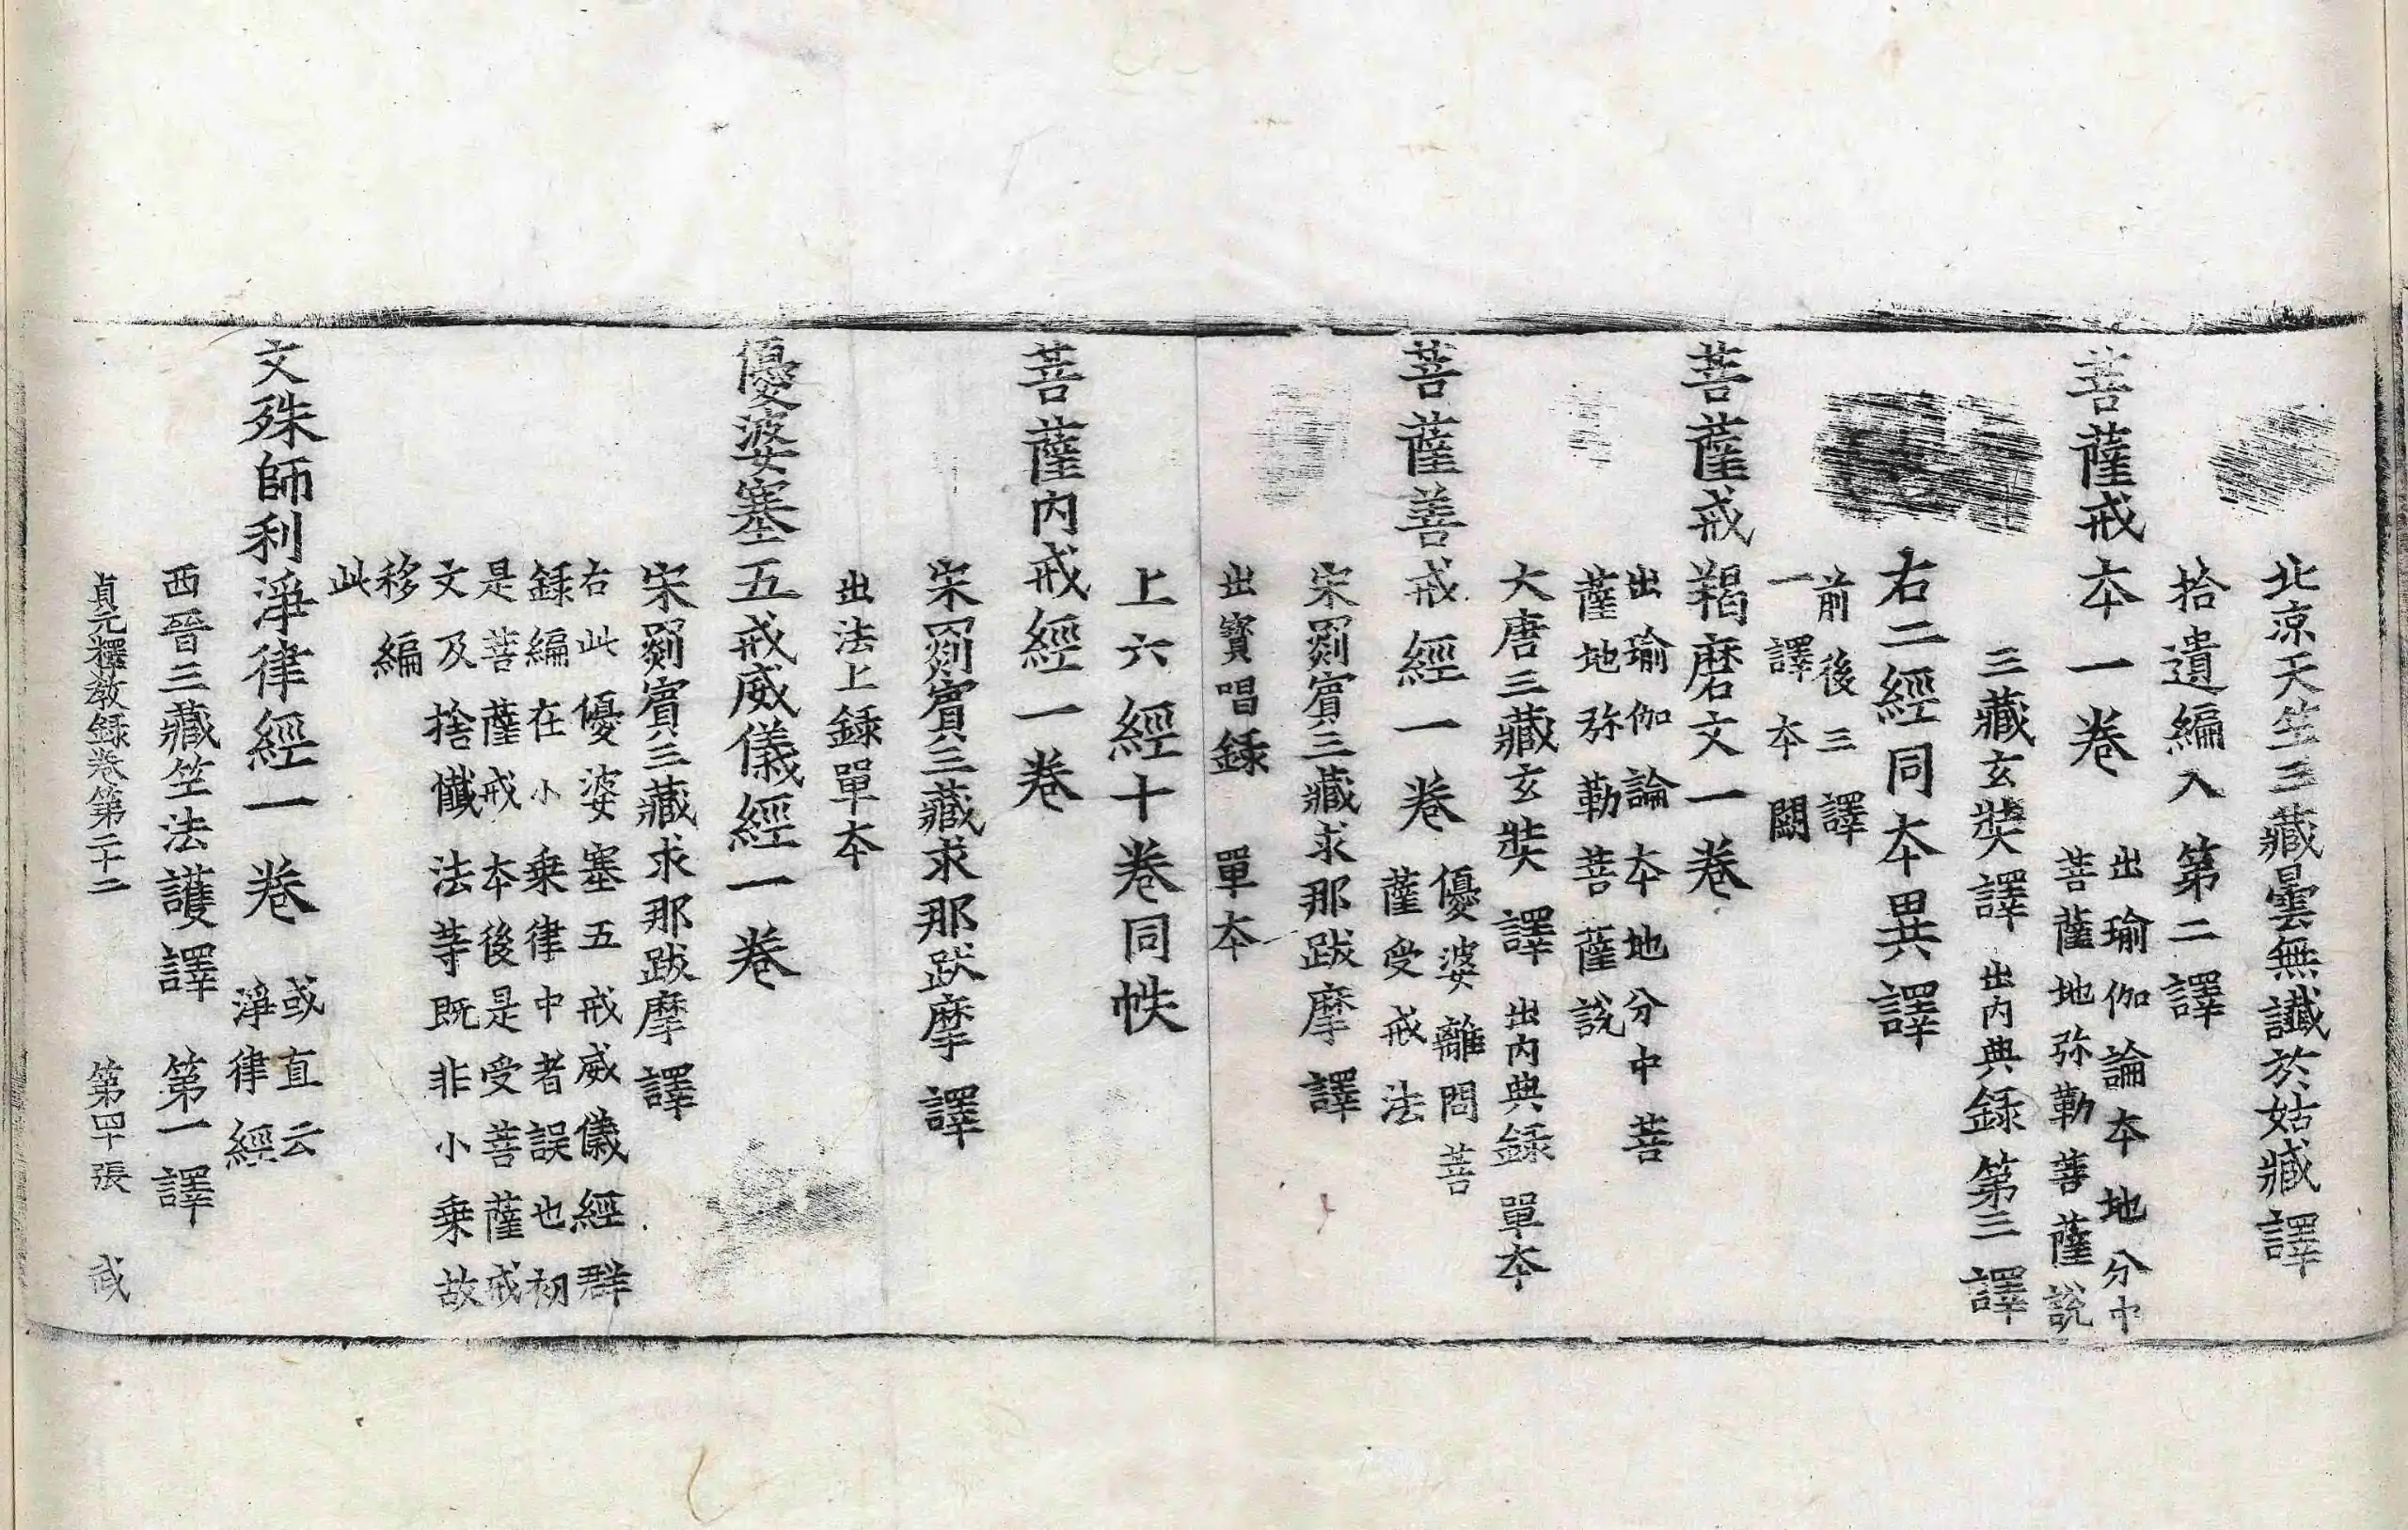 北凉天竺三藏曇無讖於姑臧譯
拾遺編入第二譯
菩薩戒夲一卷 出瑜伽論夲地分中
菩薩地弥勒菩薩說
三藏玄奘譯 出内典録第三譯
右二經同夲異譯
前後三譯
一譯夲闕
菩薩戒羯磨文一卷
出瑜伽論夲地分中菩
薩地弥勒菩薩說
大唐三藏玄奘譯 出内典録單夲
菩薩善戒經一卷 優婆離問菩
薩受戒法
宋罽賓三藏求那跋摩譯
出寶唱録 單夲
上六經十卷同帙
菩薩内戒經一卷
宋罽賓三藏求那跋摩譯
出法上録單夲
優婆塞五戒威儀經一卷
宋罽賓三藏求那跋摩譯
右此優婆塞五戒威儀經群
録編在小乗律中者誤也初
是菩薩戒夲後是受菩薩戒
文及捨懺法等既非小乗故
移編
此
文殊師利淨律經一卷 或直云
淨律經
西晉三藏竺法護譯 第一譯
貞元釋教録卷第二十二 第四十張 戒